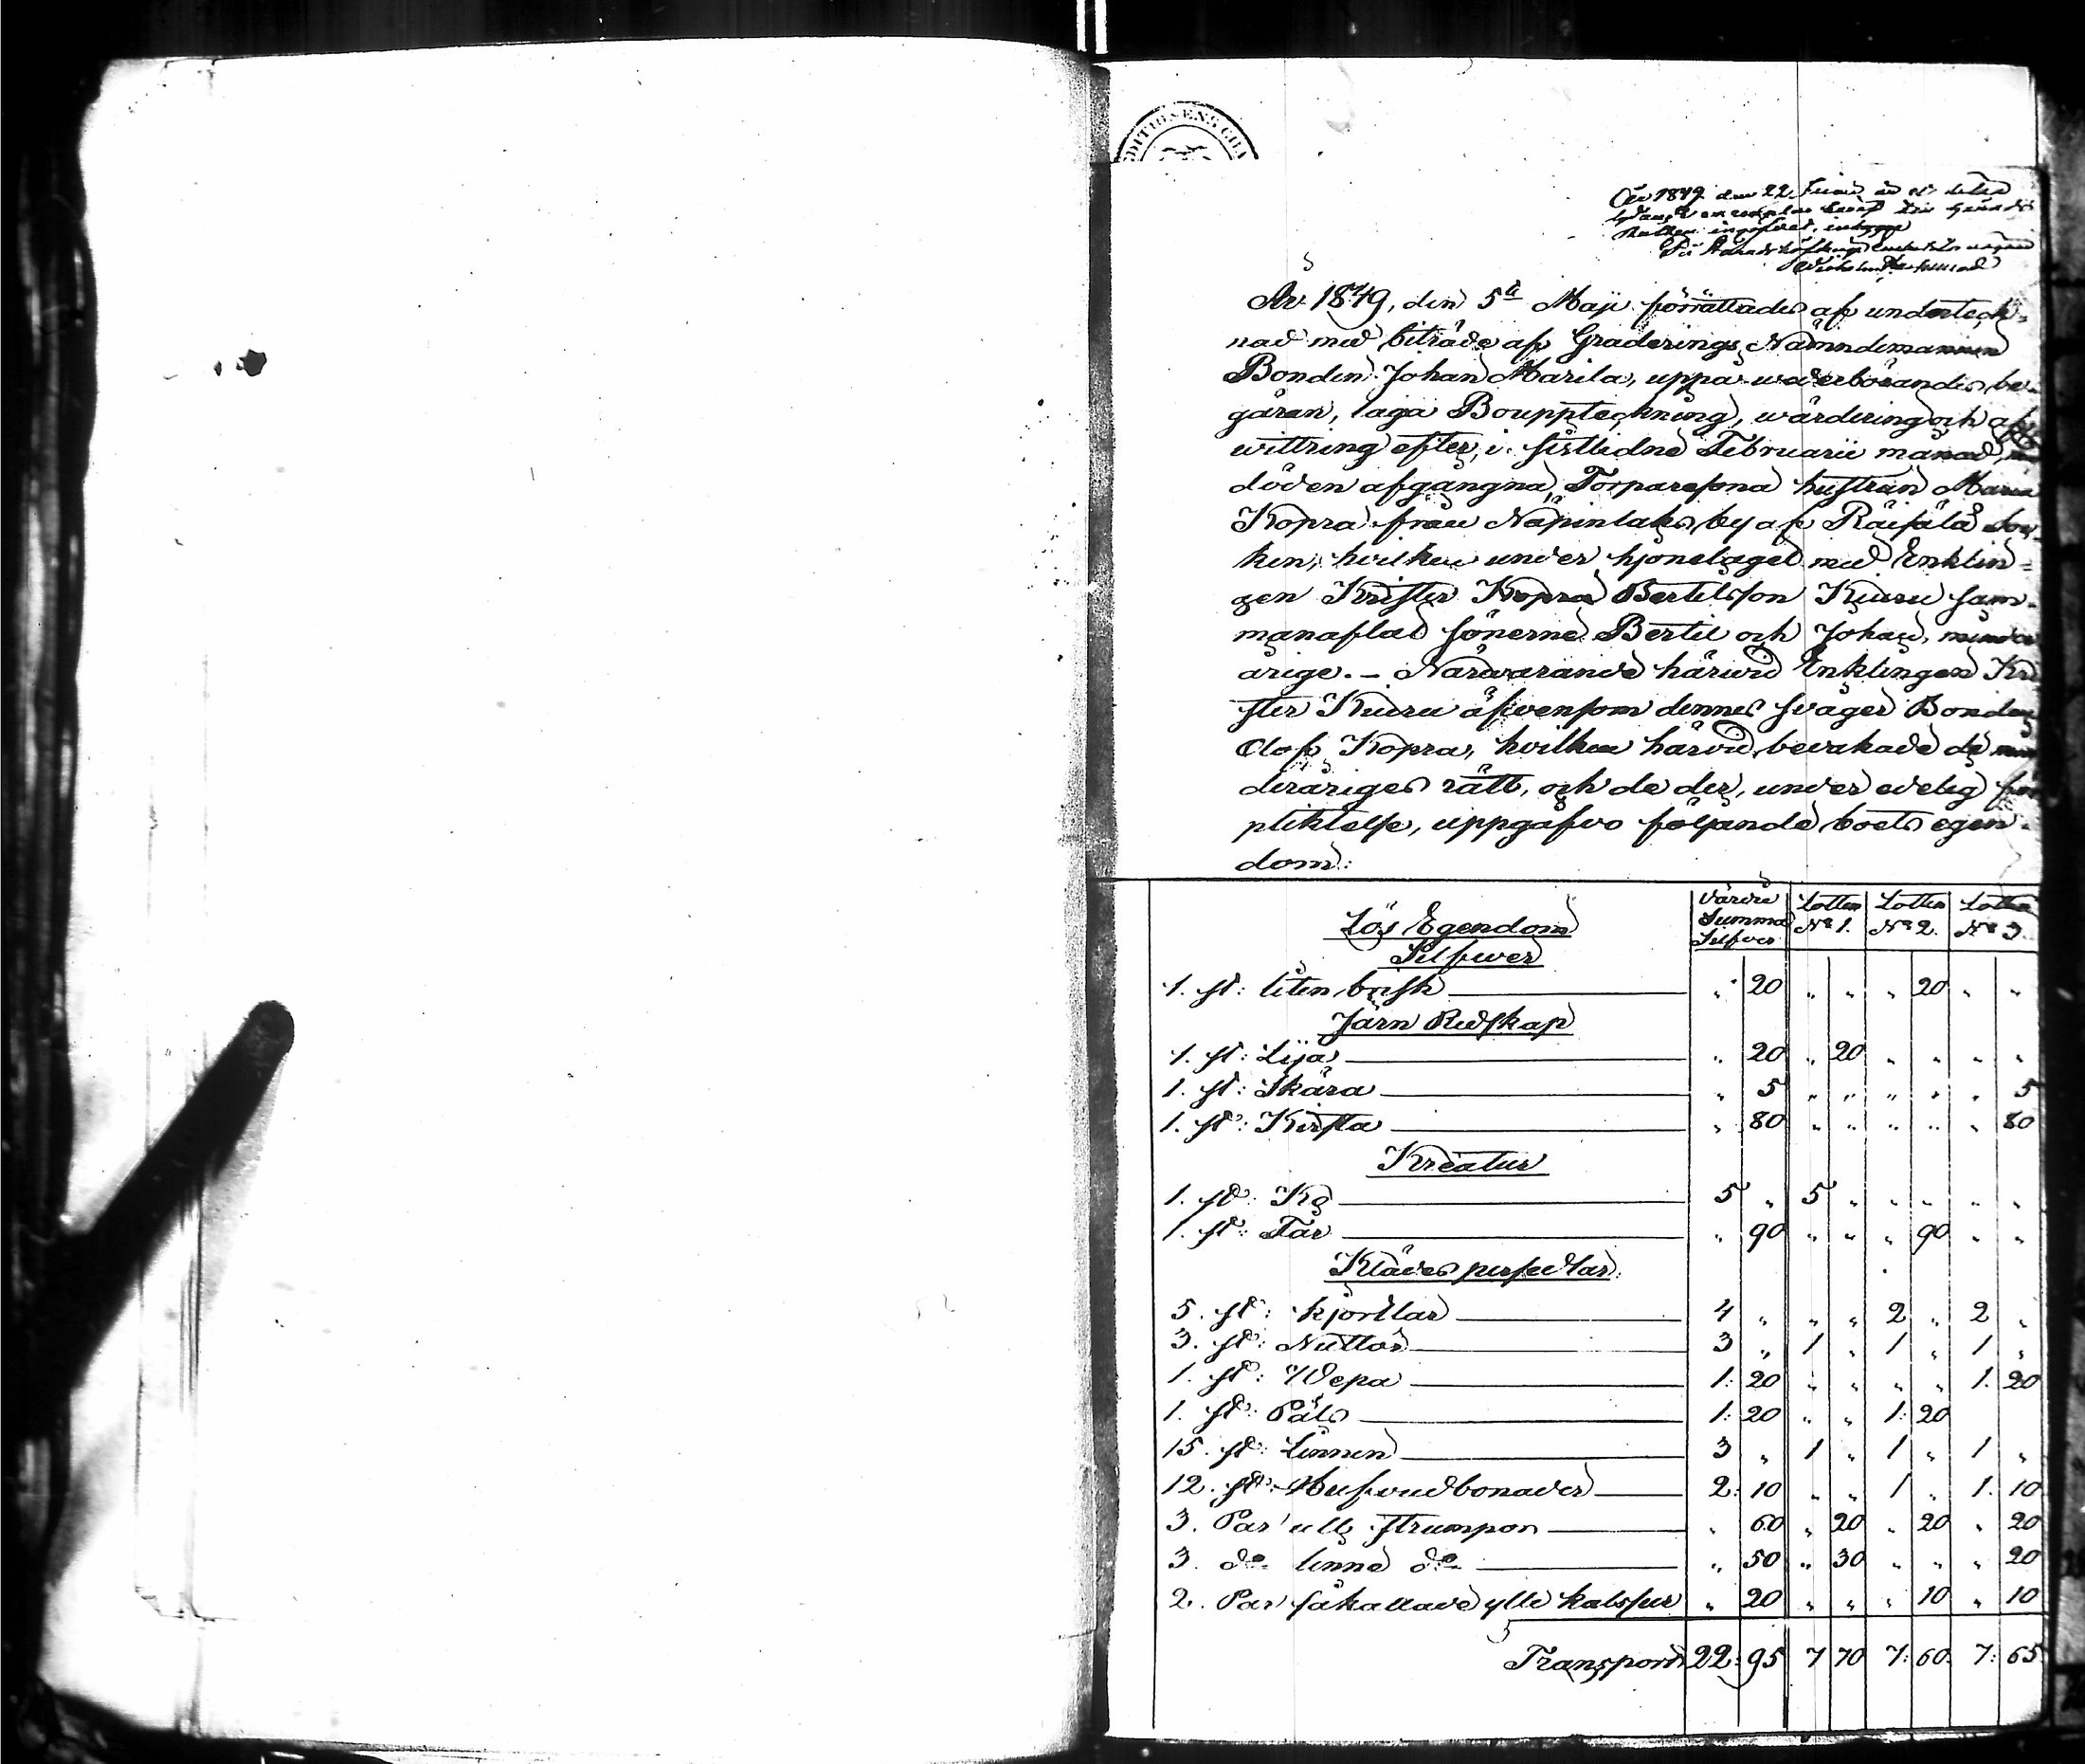 DITIONSENS CHA
År 1849 den 22 Junii är et detta
lydande exemplar
ingifvet, intygga
År 1849, den 5te Maji förrättades af underteck-
nad med biträde af Graderings Nämndemannen
Bonden Johan Marila, uppå wederbörandes be-
gäran, laga Bouppteckning, wärdering och af-
wittring efter, i sistledne Februarii månad,
döden afgångna, Torparesona hustrun Maria
Kopra från Näpinlaks by af Räisälä Soc-
ken, hvilken under hjonelaget med Enklin-
gen Krister Kopra Bertilsson Kiuru sam-
manaflat sönerne Bertil och Johan, minder
årige. – Närwarande härwid Enklingen Kri
ster Kiuru äfvensom dennes svåger Bonden
Olof Kopra, hvilken härvid bevakade de min
deråriges rätt, och de der, under edelig för
pliktelse, uppgåfvo följande boets egen-
dom:
Lös Egendom
Värde Summa Silfver
Lotten No 1.
Lotten No 2.
Lotten No 3.
Silfwer
1. st: liten brisk " 20 " " " 20 " "
Järn Redskap
1. st: Lija " 20 " 20 " " " "
1. st: Skära " 5 " " " " " 5
1. st: Kista " 80 " " " " " 80
Kreatur
1. st: Ko 5 " 5 " " " " "
1. st: Får " 90 " " " 90 " "
Klädes persedlar:
5. st: kjortlar 4 " " " 2 " 2 "
3. st: Nuttor 3 " 1 " 1 " 1 "
1. st: Wepa 1: 20 " " " " 1. 20
1. st: Päls 1: 20 " " 1: 20
15. st: Linnen 3 " 1 " 1 " 1 "
12. st: Hufvudbonader 2: 10 " " 1 " 1. 10
3. Par ull strumpor " 60 " 20 " 20 " 20
3. do linne do " 50 " 30 " " " 20
2. Par såkallade ylle kalsser " 20 " " " 10 " 10
Transport 22: 95 7 70 7: 60. 7: 65